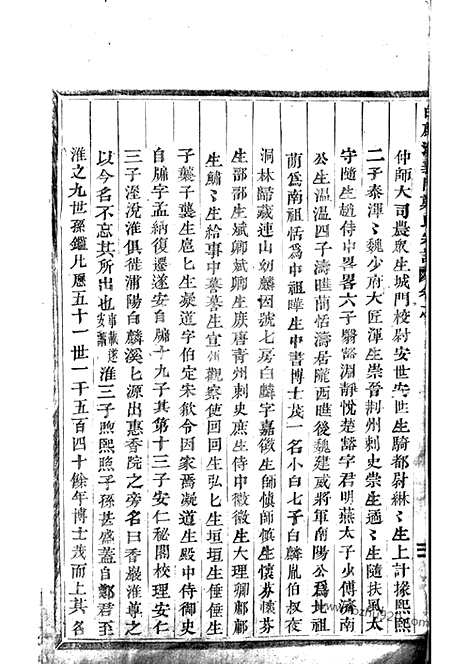 仲師大司農眾生城門校尉安世安世生騎都尉綝〻生上計掾熙熙
二子泰渾〻魏少府大匠渾生崇晉荆州刺史崇生遹〻生隨扶風太
守隨生趙侍中畧畧六子翳豁淵靜悅楚豁字君明燕太子少傅濟南
公生溫溫四子濤瞧蘭恬濤居隴西瞧後魏建威將軍南陽公為北祖
蘭為南祖恬為中祖曄生中書博士茂一名小白七子白麟胤伯叔夜
洞林歸藏連山幼麟因號七房白麟字嘉徵生師慎師慎生懷芬懷芬
生部部生斌卿斌卿生庶唐青州刺史庶生侍中徽徽生大理卿鄘鄘
生鏽〻生給事中蓁蓁生宣州觀察使回回生弘匕生垣垣生倕倕生
子蕤子蕤生庭匕生凝道字伯定宋歙令因家焉凝道生殿中侍御史
自牖字孟納復遷遂安自牖十九子其第十三子安仁秘閣校理安仁
三子渥涗淮俱徙浦陽白麟溪匕源出惠香院之旁名曰香巖淮尊之
以今名不忘其所出也 淮三子煦熙照子孫甚盛蓋自鄭君至
淮之九世孫鑑凡歷五十一世一千五百四十餘年博士茂而上其名